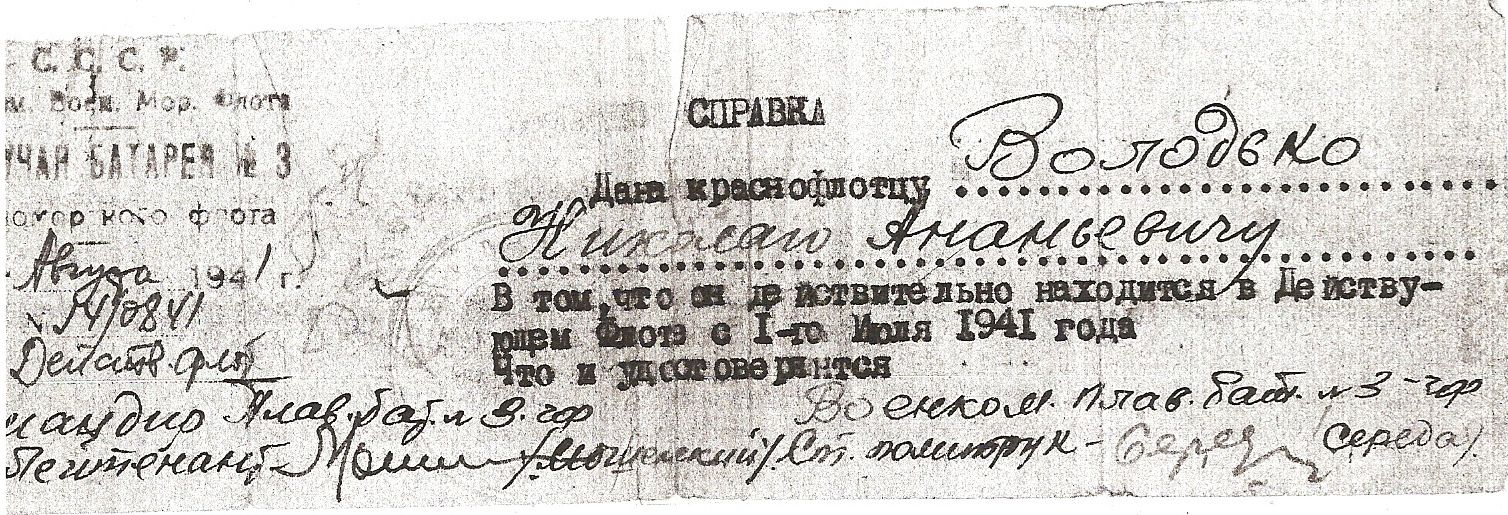 С. С. С. Р.
Воен. Мор. Флота
БАТАРЕЯ № 3
флота
Августа 1941 г.
Действ. флот
СПРАВКА
Дана краснофлотцу Володько
Николаю Ананьевичу
В том, что он действительно находится в Действу-
ющем Флоте с 1-го Июля 1941 года
Что и удостоверяется
Плав. бат. № 3. ЧФ
Лейтенант
Военком. плав. бат. № 3 - ЧФ
Ст. политрук - Серед (Середа).